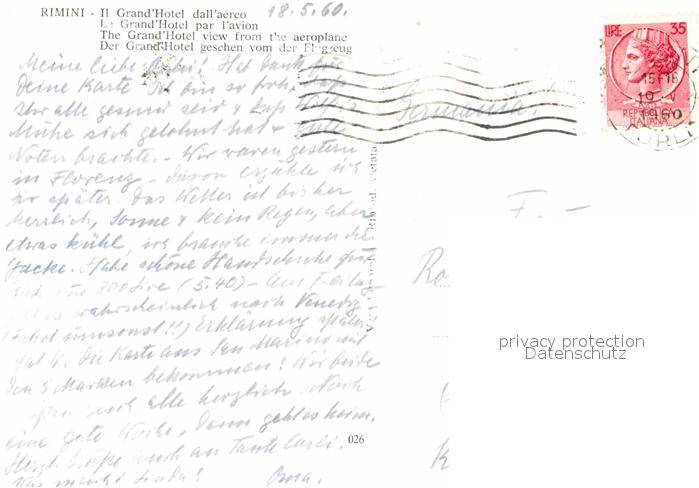 RIMINI - Il Grand'Hotel dall'aereo 18.5.60.
Le Grand'Hotel par l'avion
The Grand'Hotel view from the aeroplane
Der Grand-Hotel gesehen vom der Flugzeug
Meine liebe Hat Dank für
deine Karte. Ich bin so froh,
Ihr alle gesund seid &
Mühe sich gelohnt hat & gute
Noten brachte. - Wir waren gestern
in Florenz - davon erzähle ich
Dir später. Das Wetter ist bisher
herrlich, Sonne & kein Regen, aber
etwas kühl, ich brauche immer die
Jacke. Habe schöne Handschuhe
für 800 Lire (5.40) - Am Freitag
wahrscheinlich nach Venedig
(Fahrt umsonst!!) Erklärung später.
Hat die Karte aus San Marino mit
den 5 Marken bekommen? Wir beide
Euch alle herzlich. Noch
eine gute Woche, dann gehts heim.
Herzl. Grüße auch an Tante
Was macht Linda? Oma.
026
Riprod. vietata
Germania
LIRE 35
15-16
10 V
1960
REPUBBLICA
ITALIANA
F. -
Ro
K
privacy protection
Datenschutz